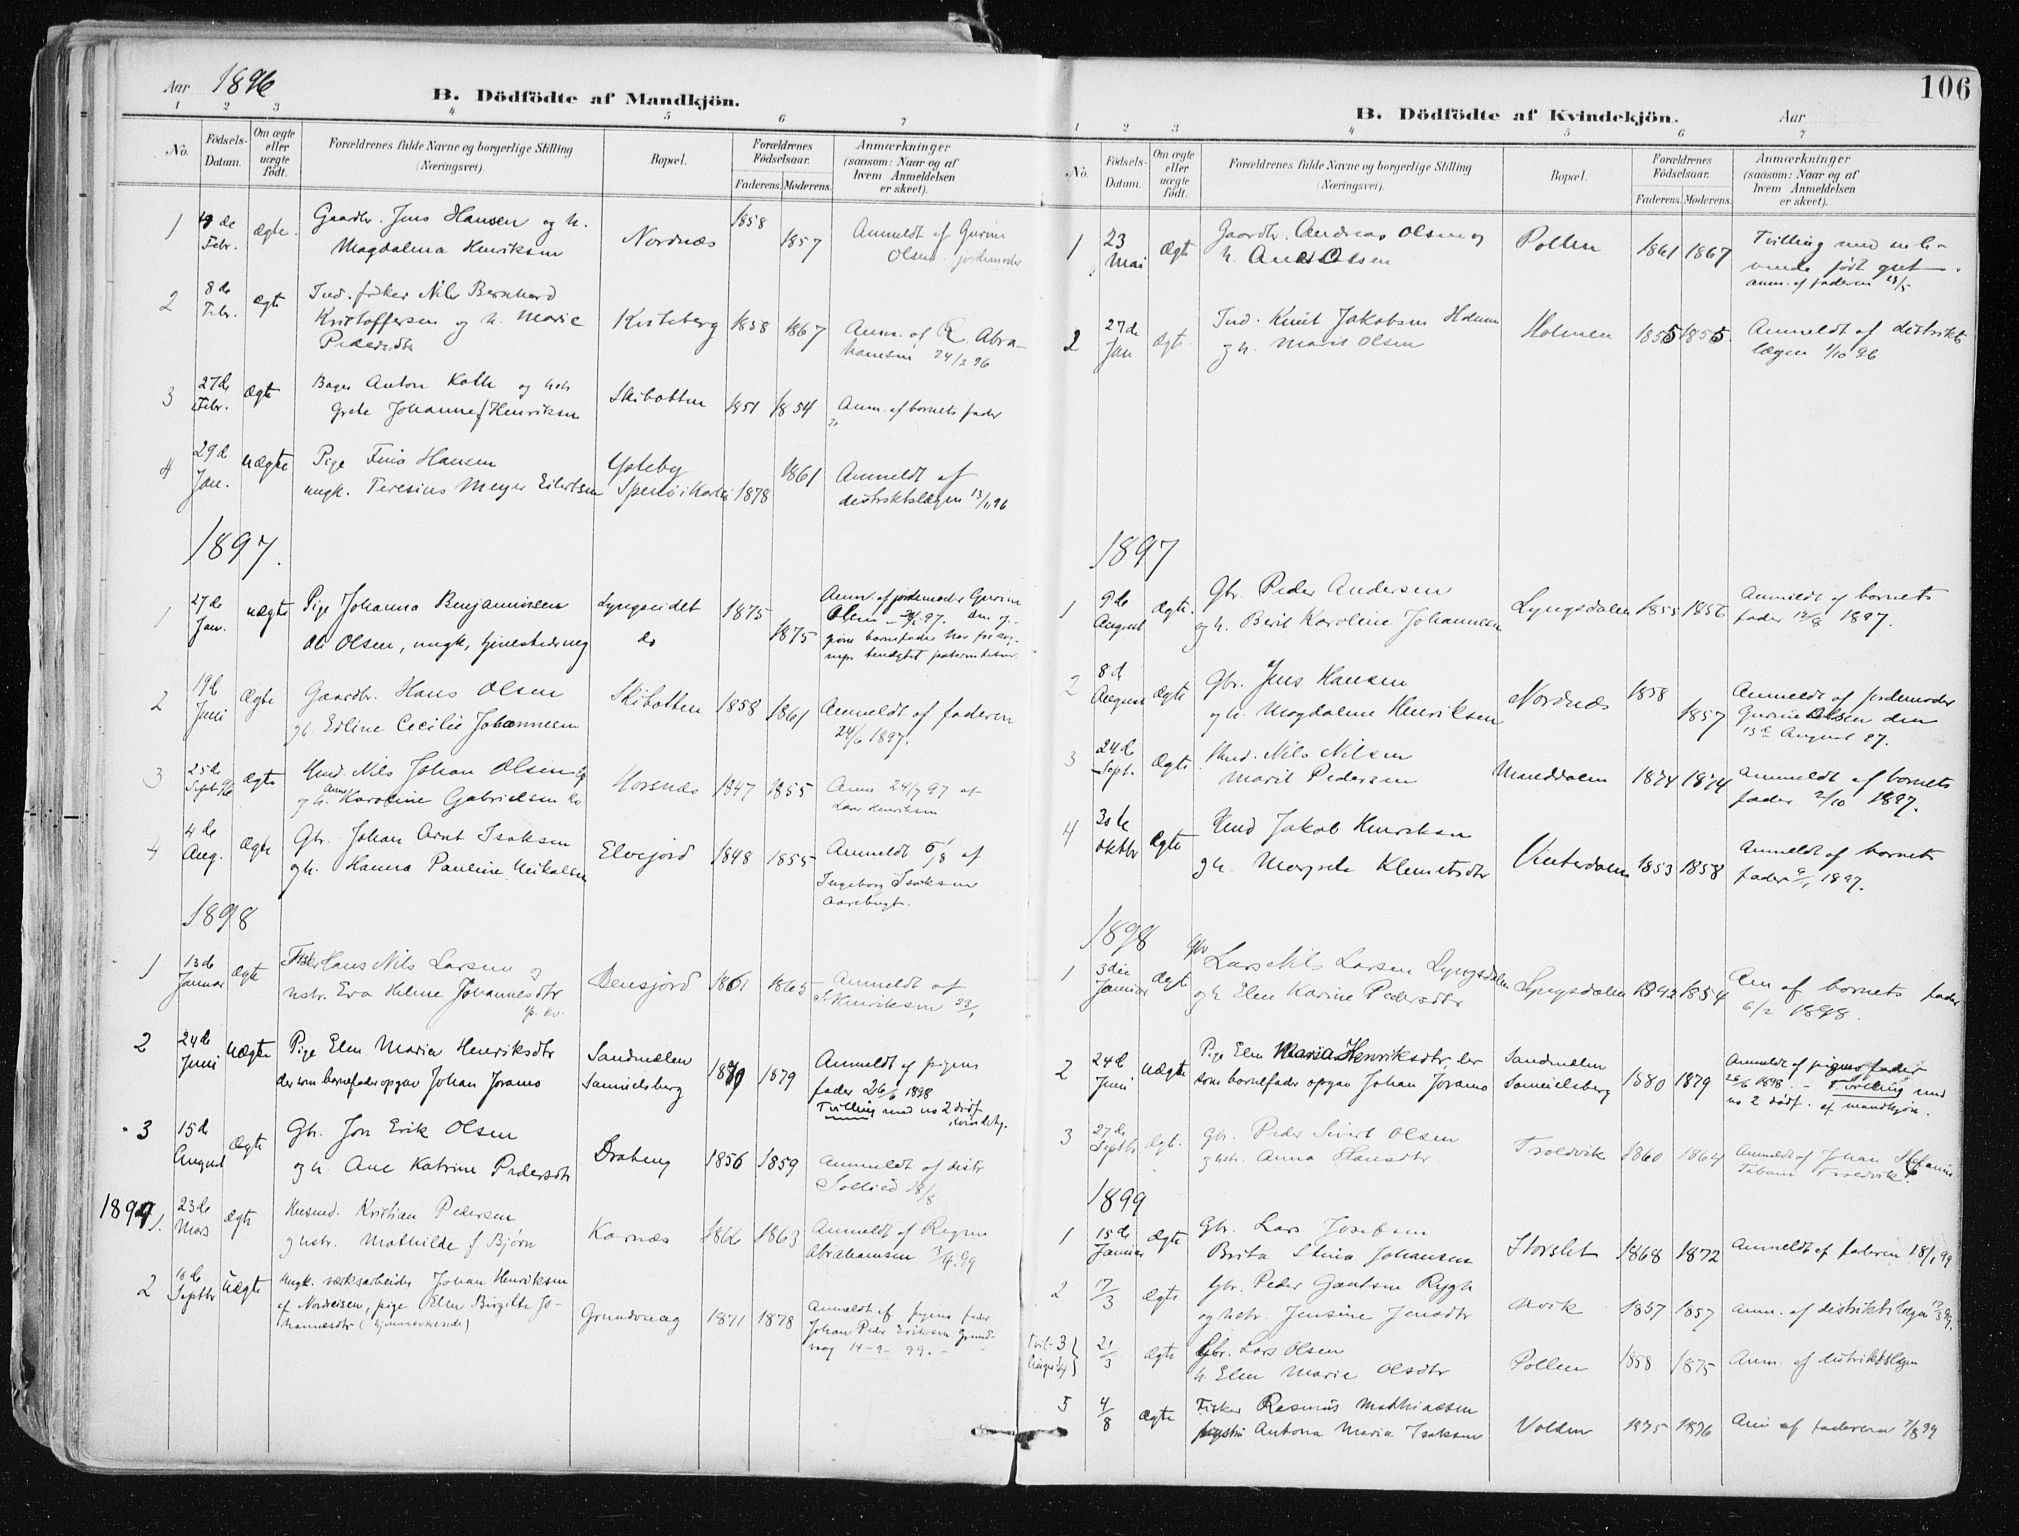 106
Aar 1896
B. Dödfödte af Mandkjön.
1 2 3 4 5 6 7
No. Födsels-Datum. Om ægte eller uægte födt. Forældrenes fulde Navne og borgerlige Stilling (Næringsvei). Bopæl. Forældrenes Födselsaar. Faderens. Moderens. Anmærkninger (saasom: Naar og af hvem Anmeldelsen er skeet).
1 de Febr. ægte. Gaardbr. Jens Hansen og h. Nordnæs 1858 Anmeldt af Gurine
Magdalena Henriksen 1857 Olsen jordemoder
2 8de Febr. ægte Ind. fisker Nils Bernhard
Kristoffersen og h. Marie Kviteberg 1858 1867 Anm. af R. Abra-
Pedersdtr hamsen 24/2 96
3 27de Febr. ægte Bager Anton Koth og hstr Skibotten 1851 1854 Anm. af barnets fader
Grete Johanne f Henriksen
4 29d Jan. uægte Pige Fina Hansen 1861 Anmeldt af
ungk. Teresius Meyer Eilertsen 1878 distriktslægen 13/1 96
1897.
1 27de Jan. uægte Pige Johanna Benjaminsen Lyngseidet 1875 Anm. af jordemoder Gurine
Ole Olsen, ungk, tjenestedreng do 1875 Olsen
2 19de Juni Ægte Gaardbr. Hans Olsen Skibotten 1858 1861 Anmeldt af faderen
og h. Edline Cecilie Johannesen 24/6 1897.
3 25de Sept. ægte Ind. Nils Johan Olsen Horsnæs 1847 1855 Anm. 24/7 97 af
og h. Anne Karoline Gabrielsen Lars Henriksen
4 4de Aug. ægte Gbr. Johan Arnt Isaksen Elvejord 1848 1855 Anmeldt 5/8 af
og h. Hanna Pauline Nikolaisen Ingeborg Isaksen
Aarebugt.
1898
1 13de Januar ægte Fisker Hans Nils Larsen og Bensjord 1861 1865 Anmeldt af
hstr. Eva Helene Johannesdtr S Henriksen 23/1
2 24de Juni Uægte Pige Elen Maria Henriksdtr Sandmelen 1879 Anmeldt af pigens
der som barnefader opgav Johan Jorams Samuelsberg fader 26/6 1898
Tvilling med no 2 dödf. kvindekj.
3 15de August ægte Gbr. Jon Erik Olsen 1856 1859 Anmeldt af distr
og h. Ane Katrine Pedersdtr 18/8
1899 1. 23de Mars ægte Husmd. Kristian Pedersen Karnæs 1866 1863 Anmeldt af Regine
og hstr. Mathilde f Bjørn Abrahamsen 3/4 99
2 Septbr Uægte Ungk. værksarbeider Johan Henriksen
af Nordreisen, pige Elen Birgitte Jo- Grundvaag 1871 1878 Anmeldt af pigens fader
hannesdtr (hjemmeværende) Johan Peder Eriksen Grund-
vaag 14-9-99.
B. Dödfödte af Kvindekjön.
Aar
1 2 3 4 5 6 7
No. Födsels-Datum. Om ægte eller uægte födt. Forældrenes fulde Navne og borgerlige Stilling (Næringsvei). Bopæl. Forældrenes Födselsaar. Faderens. Moderens. Anmærkninger (saasom: Naar og af hvem Anmeldelsen er skeet).
1 23 Mai ægte Gaardbr. Andreas Olsen og Pollen 1861 1867 Tvilling med en le-
h. Ane Olsen vende født gut.
anm. af faderen 28/5
2 27de Jan ægte. Ind. Knut Jakobsen Holmen Holmen 1855 1855 Anmeldt af distrikts
og h. Marit Olsen lægen 1/10 96
1897
1 9de August ægte. Gbr. Peder Andersen Lyngsdalen 1855 1856 Anmeldt af barnets
og h. Berit Karoline Johannesen fader 12/8 1897.
2 8d August ægte Gbr. Jens Hansen Nordnæs 1858 Anmeldt af jordemoder
og h. Magdalene Henriksen 1857 Gurine Olsen den
13de August 97.
3 24de Sept. ægte Ind. Nils Nilsen Manddalen 1874 1874 Anmeldt af barnets
Marit Pedersen fader 2/10 1897.
4 30te Oktbr ægte Ind Jakob Henriksen Vinterdalen 1853 1858 Anmeldt af barnets
og h. Margrete Klemetsdtr fader 1897.
1898
1 3die Januar ægte Gbr Lars Nils Larsen Lyngsdalen Lyngsdalen 1842 1854 Anm af barnets fader
og h Elen Karine Pedersdtr 6/2 1898.
2 24de Juni uægte Pige Elen Maria Henriksdtr, der Sandmelen 1880 1879 Anmeldt af pigens fader
som barnefader opgav Johan Jorams Samuelsberg 26/6 1898. - Tvilling med
no 2 dödf. af mandkjön.
3 27de Septbr ægt. Gbr. Peder Sivert Olsen Troldvik 1860 1864 Anmeldt af Johan
og hstr. Anna Hansdtr Troldvik.
1899
1 15de Januar ægte Gbr. Lars Josefsen Storslet 1868 1872 Anmeldt af faderen 18/1 99
Brita Stina Johansen
2 17/3 ægte Gbr. Peder Gjøtsen Rygh 1857 1857 Anm. af distriktslægen
og hstr. Jensine Jensdtr
3 21/3 ægte Gbr. Lars Olsen Pollen 1858 1875 Anm. af distriktslægen
h. Elen Marie Olsdtr
5 4/8 ægte Fisker Rasmus Mathiassen Volden 1875 1876 Anm af faderen 7/8 99
Antona Maria Isaksen